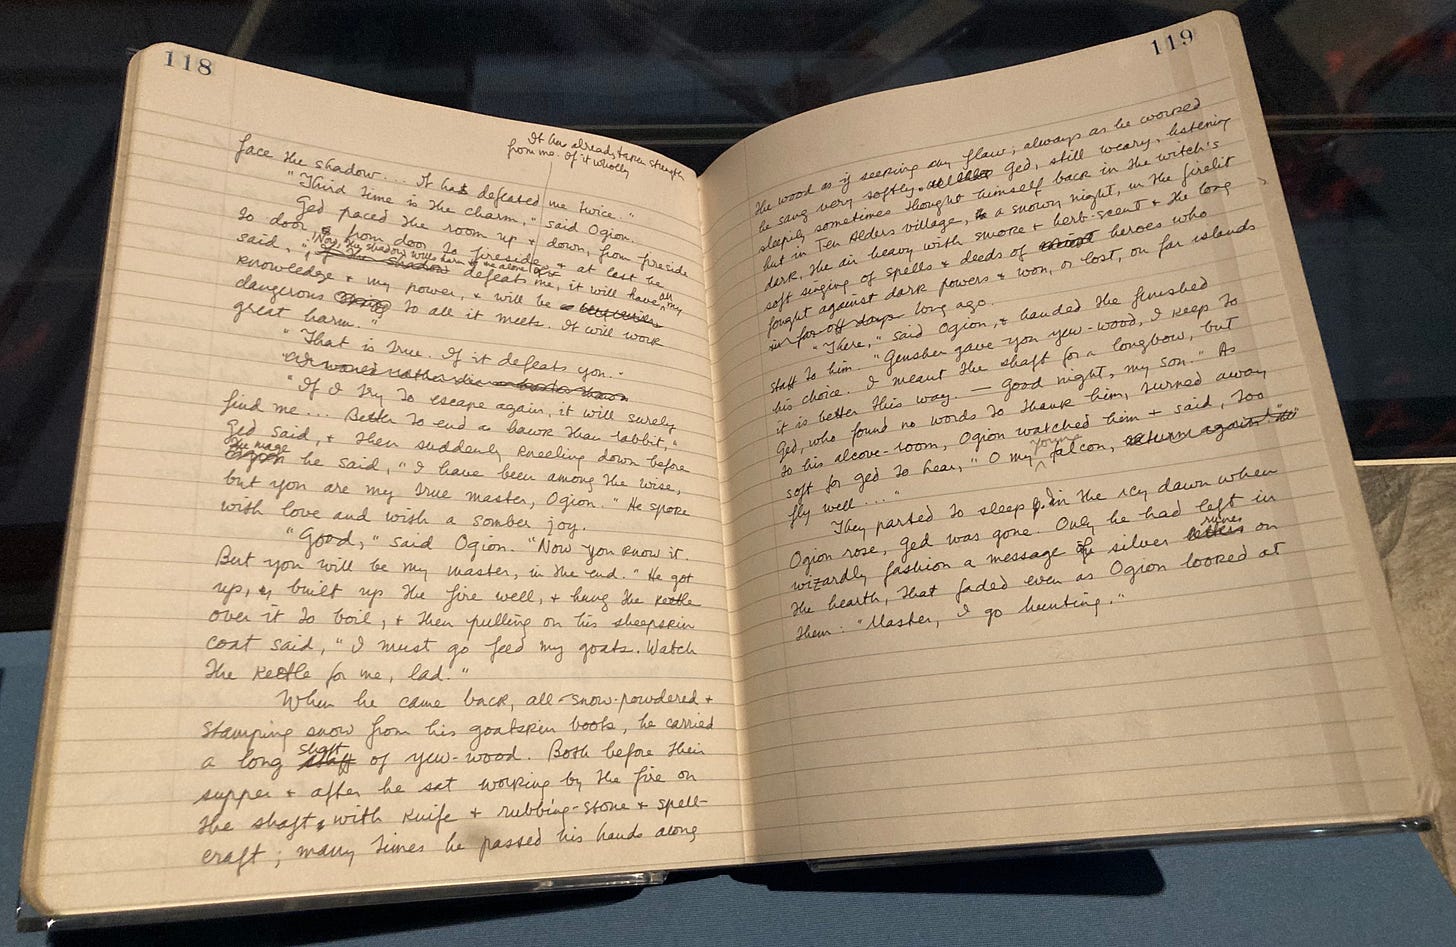 118
It has already taken strength
from me. of it wholly
face the shadow.... It has defeated me twice."
"Third time is the charm," said Ogion.
Ged paced the room up & down, from fireside
to door & from door to fireside, & at last he
Now, my shadow will
said, "If the shadow defeats me, it will have all my
knowledge & my power, & will be
dangerous to all it meets. It will work
great harm."
"That is true. If it defeats you."
"If I try to escape again, it will surely
find me... Better to end a hawk than rabbit,"
Ged said, & then suddenly kneeling down before
the mage
Ogion he said, "I have been among the wise,
but you are my true master, Ogion." He spoke
with love and with a somber joy.
"Good," said Ogion. "Now you know it.
But you will be my master, in the end." He got
up, & built up the fire well, & hung the kettle
over it to boil, & then pulling on his sheepskin
coat said, "I must go feed my goats. Watch
the kettle for me, lad."
When he came back, all snow-powdered &
stamping snow from his goatskin boots, he carried
shaft
a long staff of yew-wood. Both before their
supper & after he sat working by the fire on
the shaft, with knife & rubbing-stone & spell-
craft; many times he passed his hands along
119
the wood as if seeking any flaw; always as he worked
he sang very softly. Ged, still weary, listening
sleepily sometimes thought himself back in the witch's
hut in Ten Alders village, a snowy night, in the firelit
dark, the air heavy with smoke & herb-scent & the long
soft singing of spells & deeds of heroes who
fought against dark powers & won, or lost, on far islands
in far-off days long ago.
"There," said Ogion, & handed the finished
staff to him. "Gensher gave you yew-wood, I keep to
his choice. I meant the shaft for a longbow, but
it is better this way. — Good night, my son." As
Ged, who found no words to thank him, turned away
to his alcove-room, Ogion watched him & said, too
young
soft for Ged to hear, "O my falcon, return again!"
fly well..."
They parted to sleep In the icy dawn when
Ogion rose, Ged was gone. Only he had left in
runes
wizardly fashion a message of silver letters on
the hearth, that faded even as Ogion looked at
them: "Master, I go hunting."